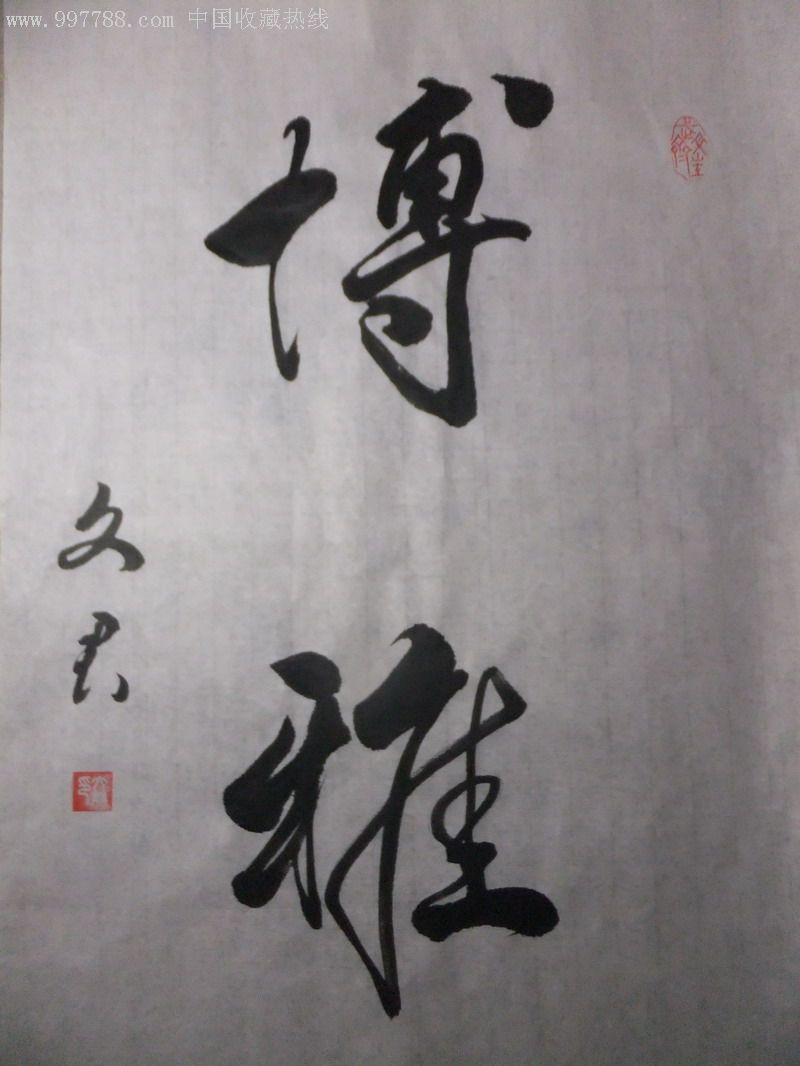 www.997788.com 中国收藏热线
博
雅
文君